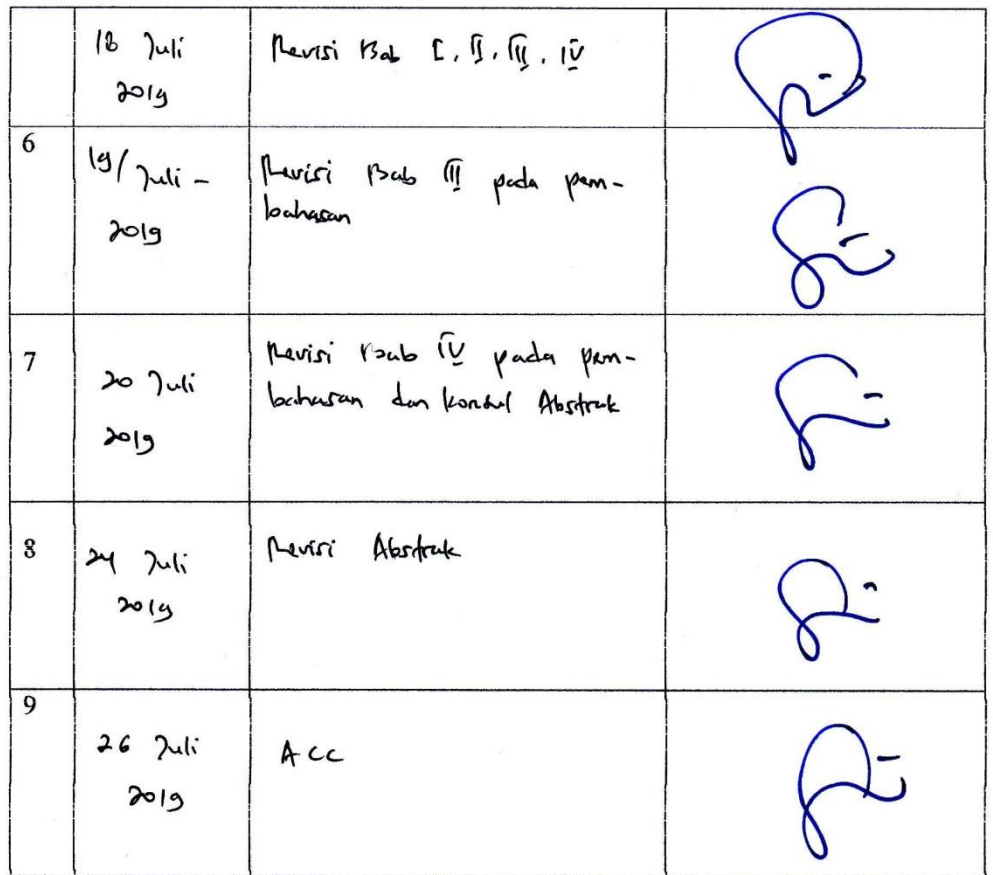 18 Juli
2019
Revisi Bab I, II, III, IV
6
19/ Juli -
2019
Revisi Bab III pada pem-
bahasan
7
20 Juli
2019
Revisi Bab IV pada pem-
bahasan dan Abstrak
8
24 Juli
2019
Revisi Abstrak
9
26 Juli
2019
ACC